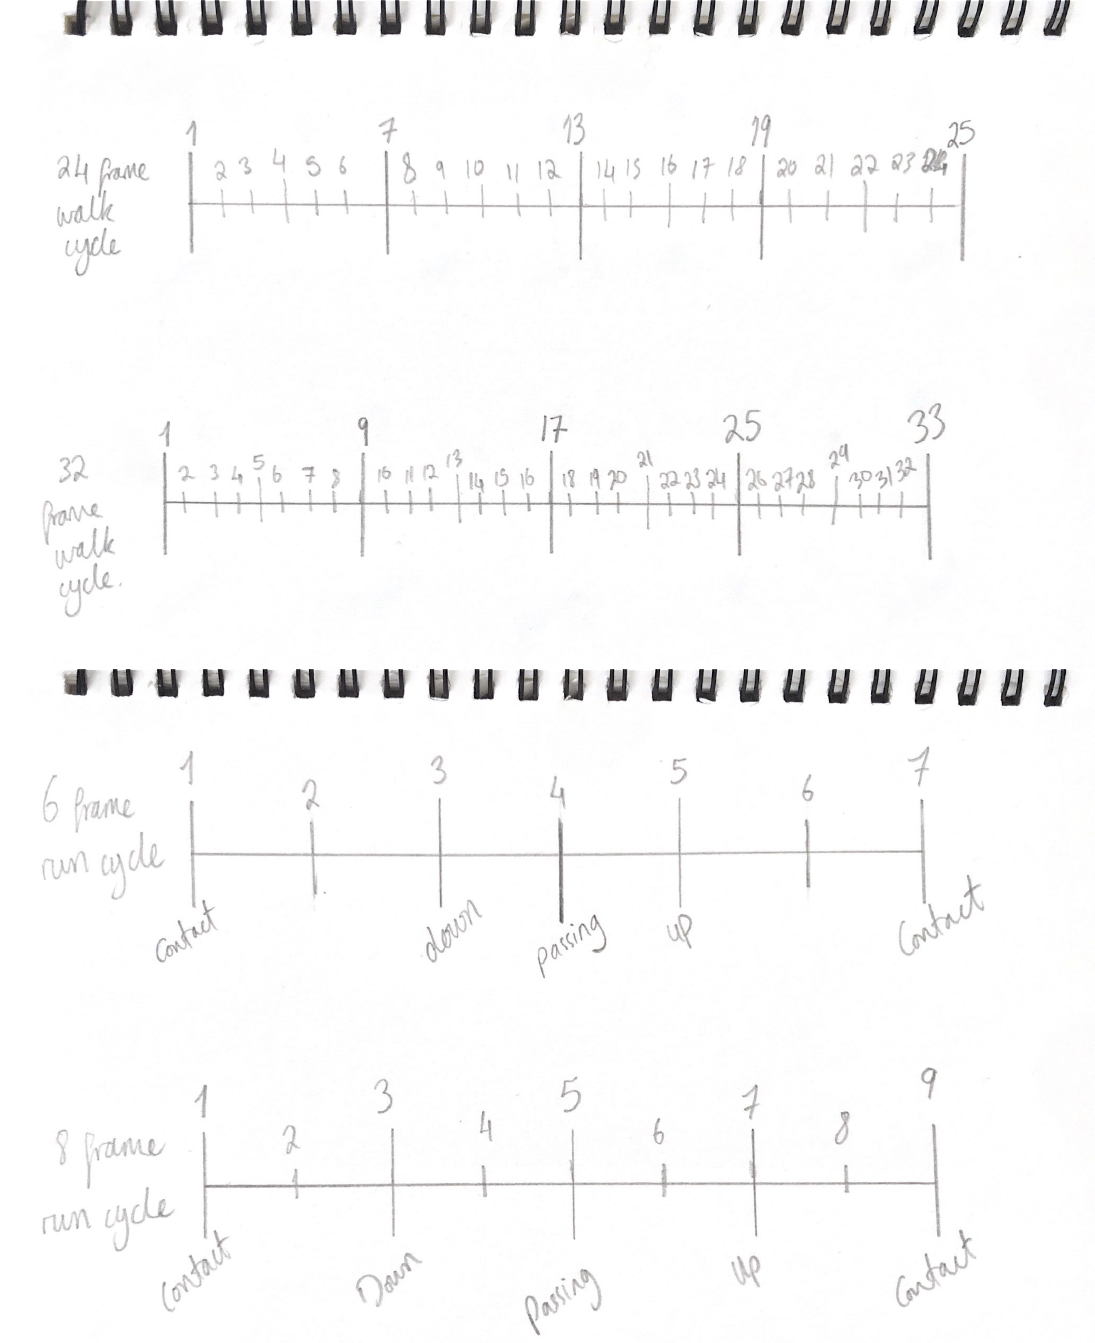 1 7 13 19 25
24 frame 2 3 4 5 6 8 9 10 11 12 14 15 16 17 18 20 21 22 23 24
walk
cycle
1 9 17 25 33
32 2 3 4 5 6 7 8 10 11 12 13 14 15 16 18 19 20 21 22 23 24 26 27 28 29 30 31 32
frame
walk
cycle.
1 2 3 4 5 6 7
6 frame
run cycle
Contact down passing up Contact
1 3 5 7 9
8 frame 2 4 6 8
run cycle
Contact Down Passing Up Contact